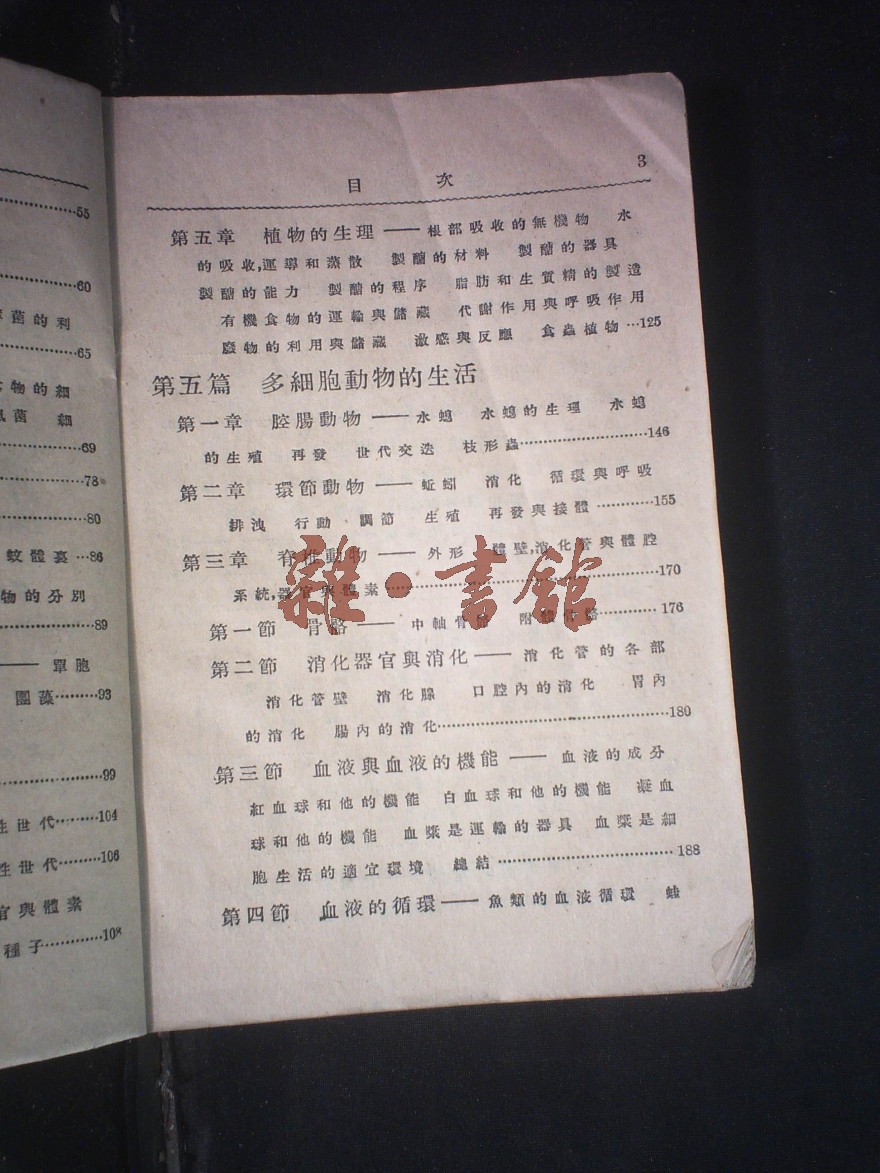 55
60
菌的利
65
物的細
菌 細
69
78
80
蚊體裏…86
物的分別
89
單胞
團藻………93
99
性世代………104
性世代………106
官與體素
種子…………108
目 次
3
第五章 植物的生理——根部吸收的無機物 水
的吸收,運導和蒸散 製醣的材料 製醣的器具
製醣的能力 製醣的程序 脂肪和生質精的製造
有機食物的運輸與儲藏 代謝作用與呼吸作用
廢物的利用與儲藏 激感與反應 食蟲植物…125
第五篇 多細胞動物的生活
第一章 腔腸動物——水螅 水螅的生理 水螅
的生殖 再發 世代交迭 枝形蟲………………146
第二章 環節動物——蚯蚓 消化 循環與呼吸
排洩 行動 調節 生殖 再發與接體…………155
第三章 脊椎動物——外形 體壁,消化管與體腔
系統,器官與體素…………………………………170
第一節 骨骼——中軸骨骼 附肢骨骼…………176
第二節 消化器官與消化——消化管的各部
消化管壁 消化腺 口腔內的消化 胃內
的消化 腸內的消化………………………………180
第三節 血液與血液的機能——血液的成分
紅血球和他的機能 白血球和他的機能 凝血
球和他的機能 血漿是運輸的器具 血漿是細
胞生活的適宜環境 總結………………………188
第四節 血液的循環——魚類的血液循環 蛙
雜·書館